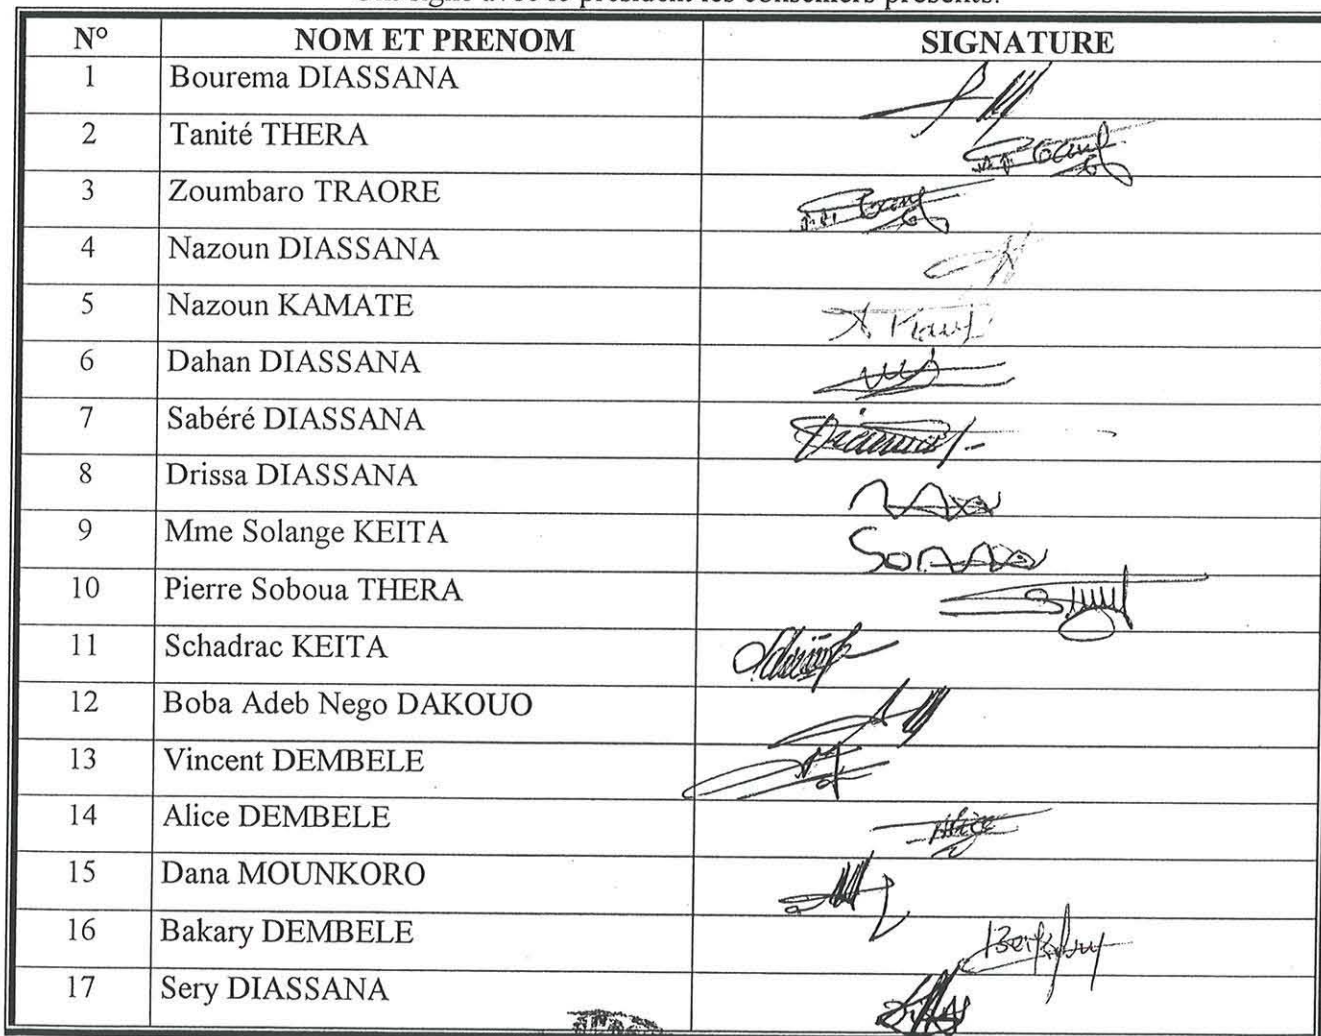 N° NOM ET PRENOM SIGNATURE
1 Bourema DIASSANA
2 Tanité THERA
3 Zoumbaro TRAORE
4 Nazoun DIASSANA
5 Nazoun KAMATE
6 Dahan DIASSANA
7 Sabéré DIASSANA
8 Drissa DIASSANA
9 Mme Solange KEITA
10 Pierre Soboua THERA
11 Schadrac KEITA
12 Boba Adeb Nego DAKOUO
13 Vincent DEMBELE
14 Alice DEMBELE Alice
15 Dana MOUNKORO
16 Bakary DEMBELE
17 Sery DIASSANA